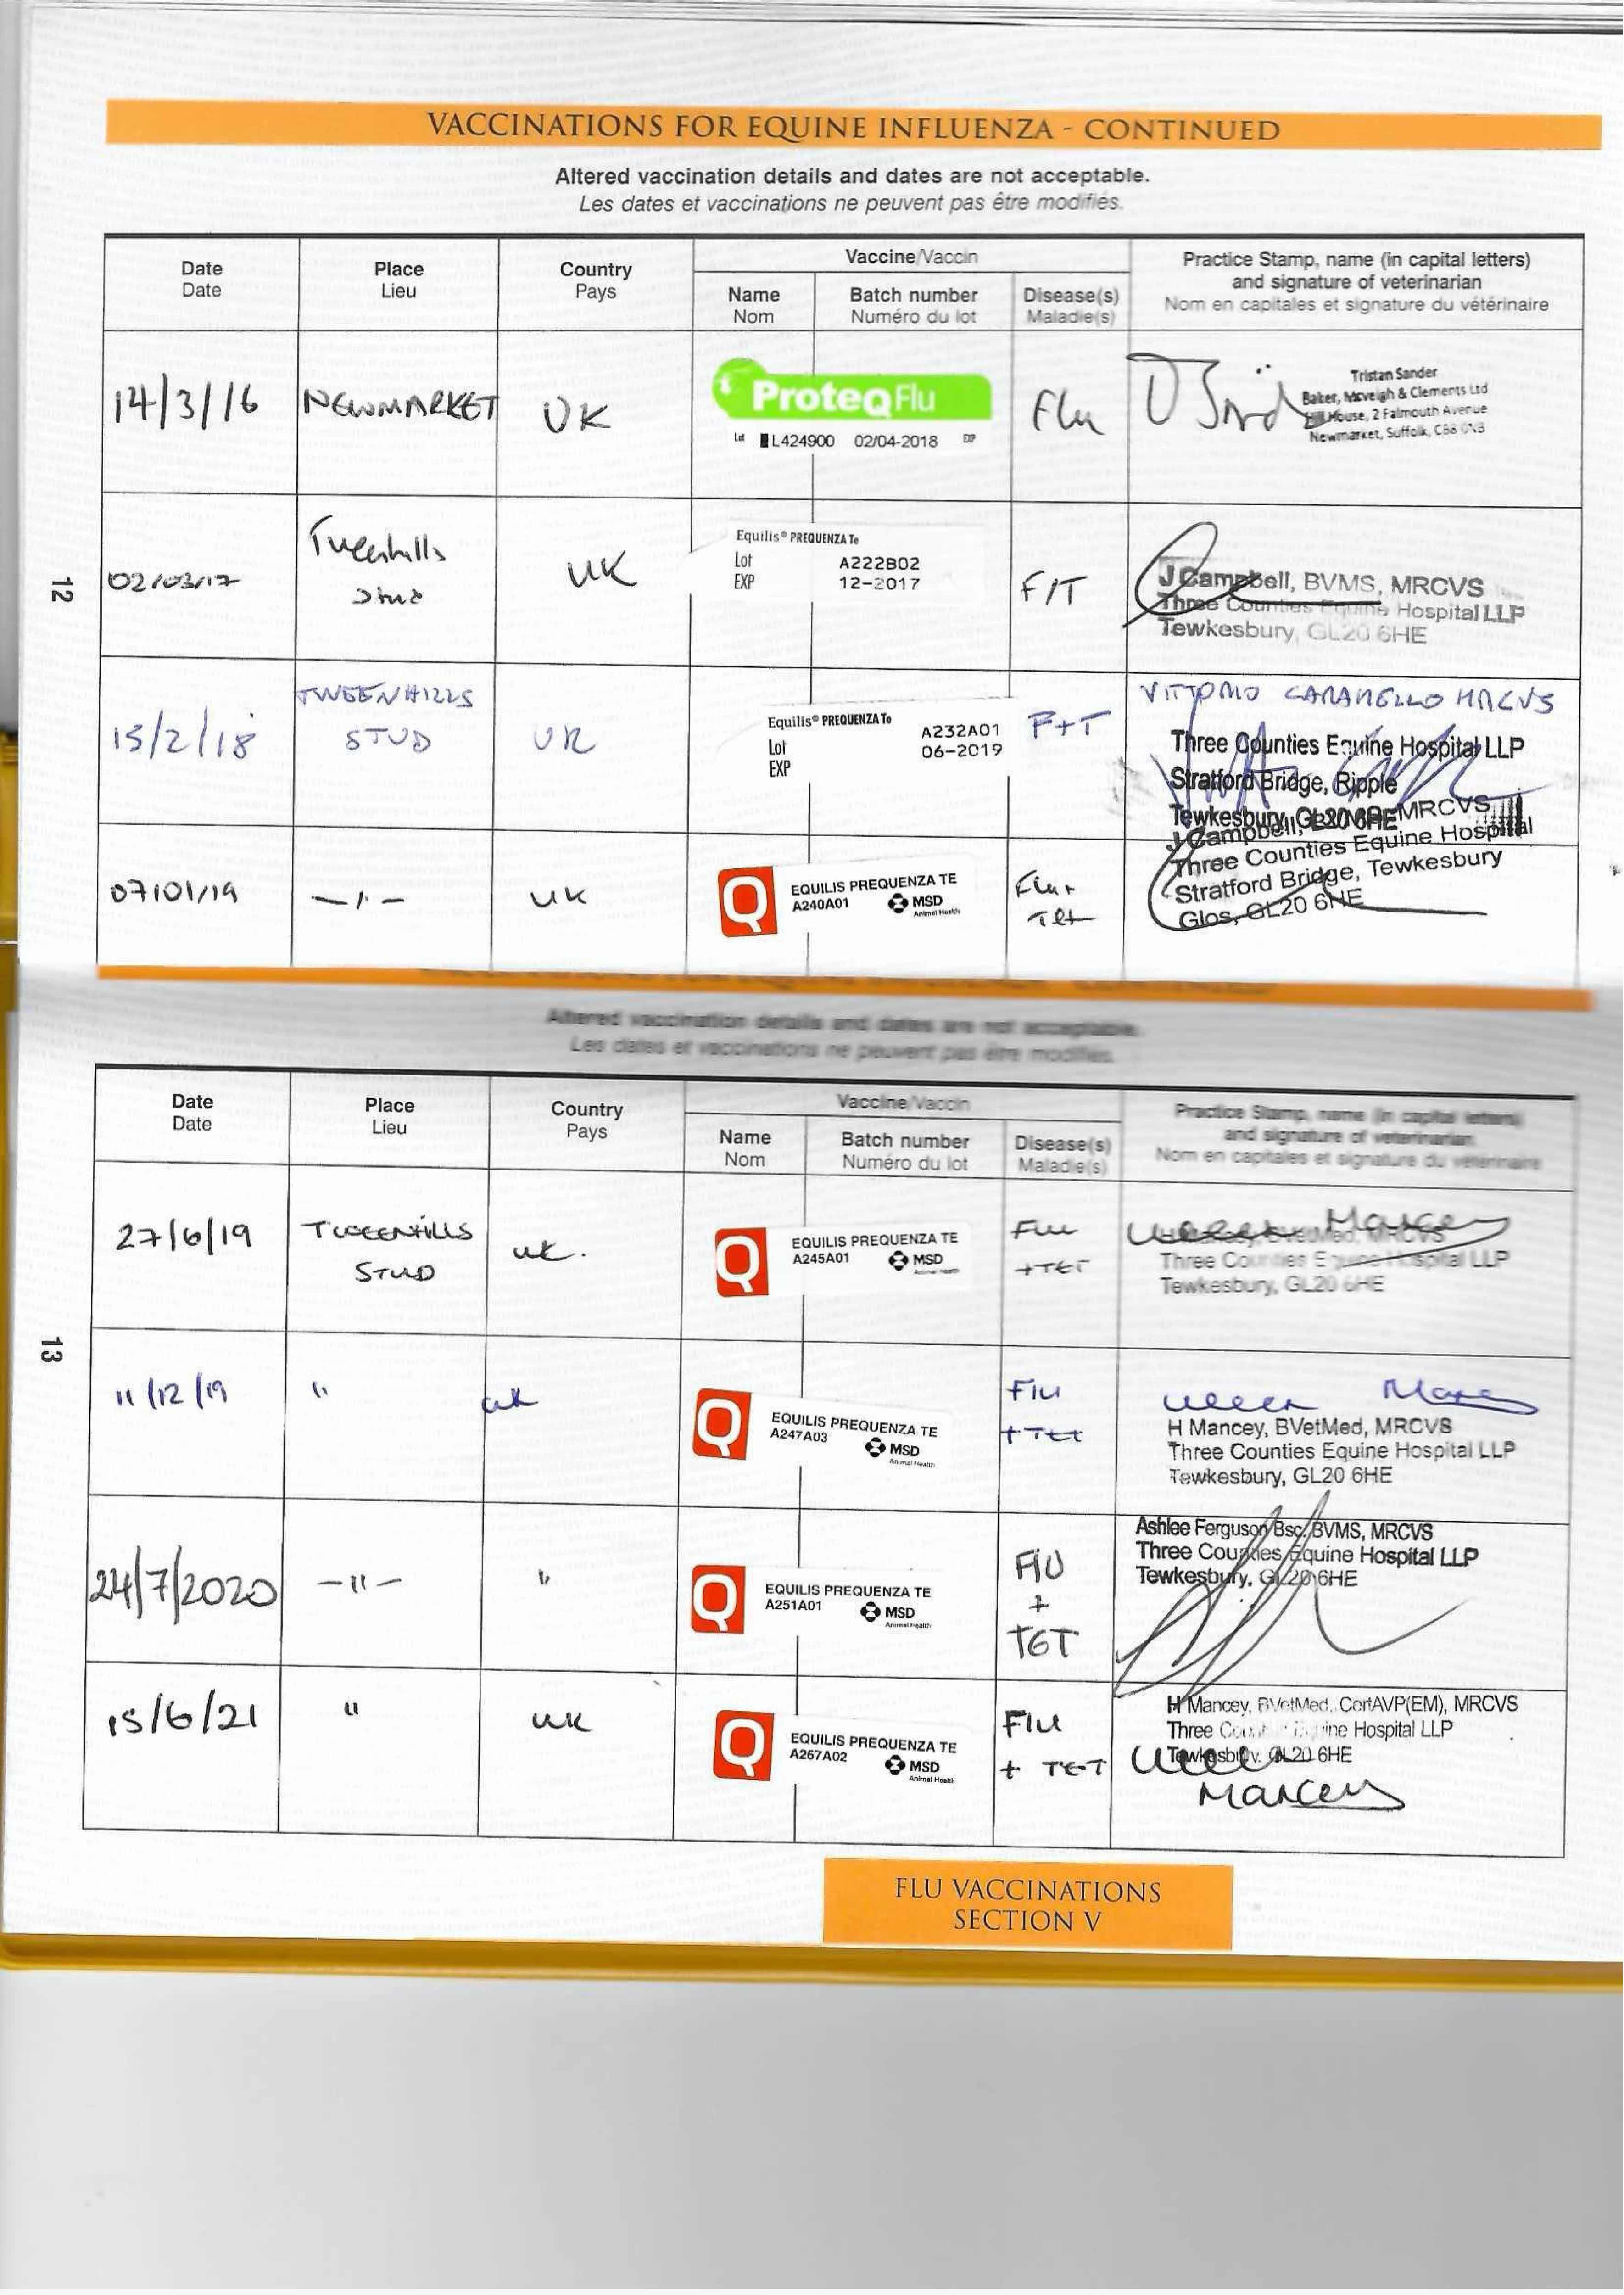 VACCINATIONS FOR EQUINE INFLUENZA - CONTINUED
Altered vaccination details and dates are not acceptable.
Les dates et vaccinations ne peuvent pas être modifiés.
Date
Date
Place
Lieu
Country
Pays
Vaccine/Vaccin
Name
Nom
Batch number
Numéro du lot
Disease(s)
Maladie(s)
Practice Stamp, name (in capital letters)
and signature of veterinarian
Nom en capitales et signature du vétérinaire
14/3/16
NEWMARKET
UK
ProteqFlu
Lot L424900 02/04-2018 DP
Flu
Tristan Sander
Baker, Mcveigh & Clements Ltd
Hill House, 2 Falmouth Avenue
Newmarket, Suffolk, CB8
12
02/03/17
Tweenhills
Stud
UK
Equilis® PREQUENZA Te
Lot A222B02
EXP 12-2017
F/T
J Campbell, BVMS, MRCVS
Three Counties Equine Hospital LLP
Tewkesbury, GL20 6HE
15/2/18
TWEENHILLS
STUD
UK
Equilis® PREQUENZA Te
Lot A232A01
EXP 06-2019
F+T
VITTORIO CARAMELLO MRCVS
Three Counties Equine Hospital LLP
Stratford Bridge, Ripple
Tewkesbury, GL20 6HE
07/01/19
-"-
UK
EQUILIS PREQUENZA TE
A240A01 MSD
Animal Health
Flu +
Tet
J Campbell, MRCVS
Three Counties Equine Hospital
Stratford Bridge, Tewkesbury
Glos, GL20 6HE
Altered vaccination details and dates are not acceptable.
Les dates et vaccinations ne peuvent pas être modifiés.
Date
Date
Place
Lieu
Country
Pays
Vaccine/Vaccin
Name
Nom
Batch number
Numéro du lot
Disease(s)
Maladie(s)
Practice Stamp, name (in capital letters)
and signature of veterinarian
Nom en capitales et signature du vétérinaire
13
27/6/19
TWEENHILLS
STUD
UK.
EQUILIS PREQUENZA TE
A245A01 MSD
Animal Health
Flu
+TET
Mancey
BVetMed, MRCVS
Three Counties Equine Hospital LLP
Tewkesbury, GL20 6HE
11/12/19
"
UK
EQUILIS PREQUENZA TE
A247A03 MSD
Animal Health
Flu
+Tet
H Mancey, BVetMed, MRCVS
Three Counties Equine Hospital LLP
Tewkesbury, GL20 6HE
24/7/2020
-"-
"
EQUILIS PREQUENZA TE
A251A01 MSD
Animal Health
FlU
+
TET
Ashlee Ferguson Bsc. BVMS, MRCVS
Three Counties Equine Hospital LLP
Tewkesbury, GL20 6HE
15/6/21
"
UK
EQUILIS PREQUENZA TE
A267A02 MSD
Animal Health
Flu
+ TET
H Mancey, BVetMed, CertAVP(EM), MRCVS
Three Counties Equine Hospital LLP
Tewkesbury, GL20 6HE
Mancey
FLU VACCINATIONS
SECTION V